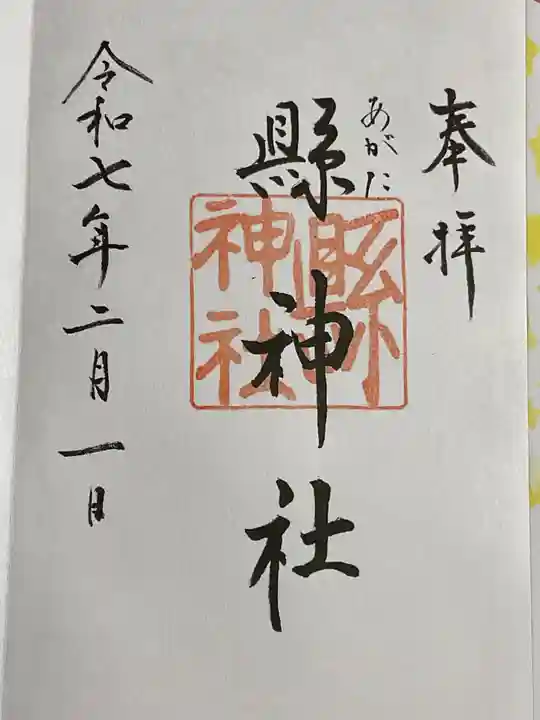 奉拝
あがた
縣神社
縣
神社
令和七年二月一日